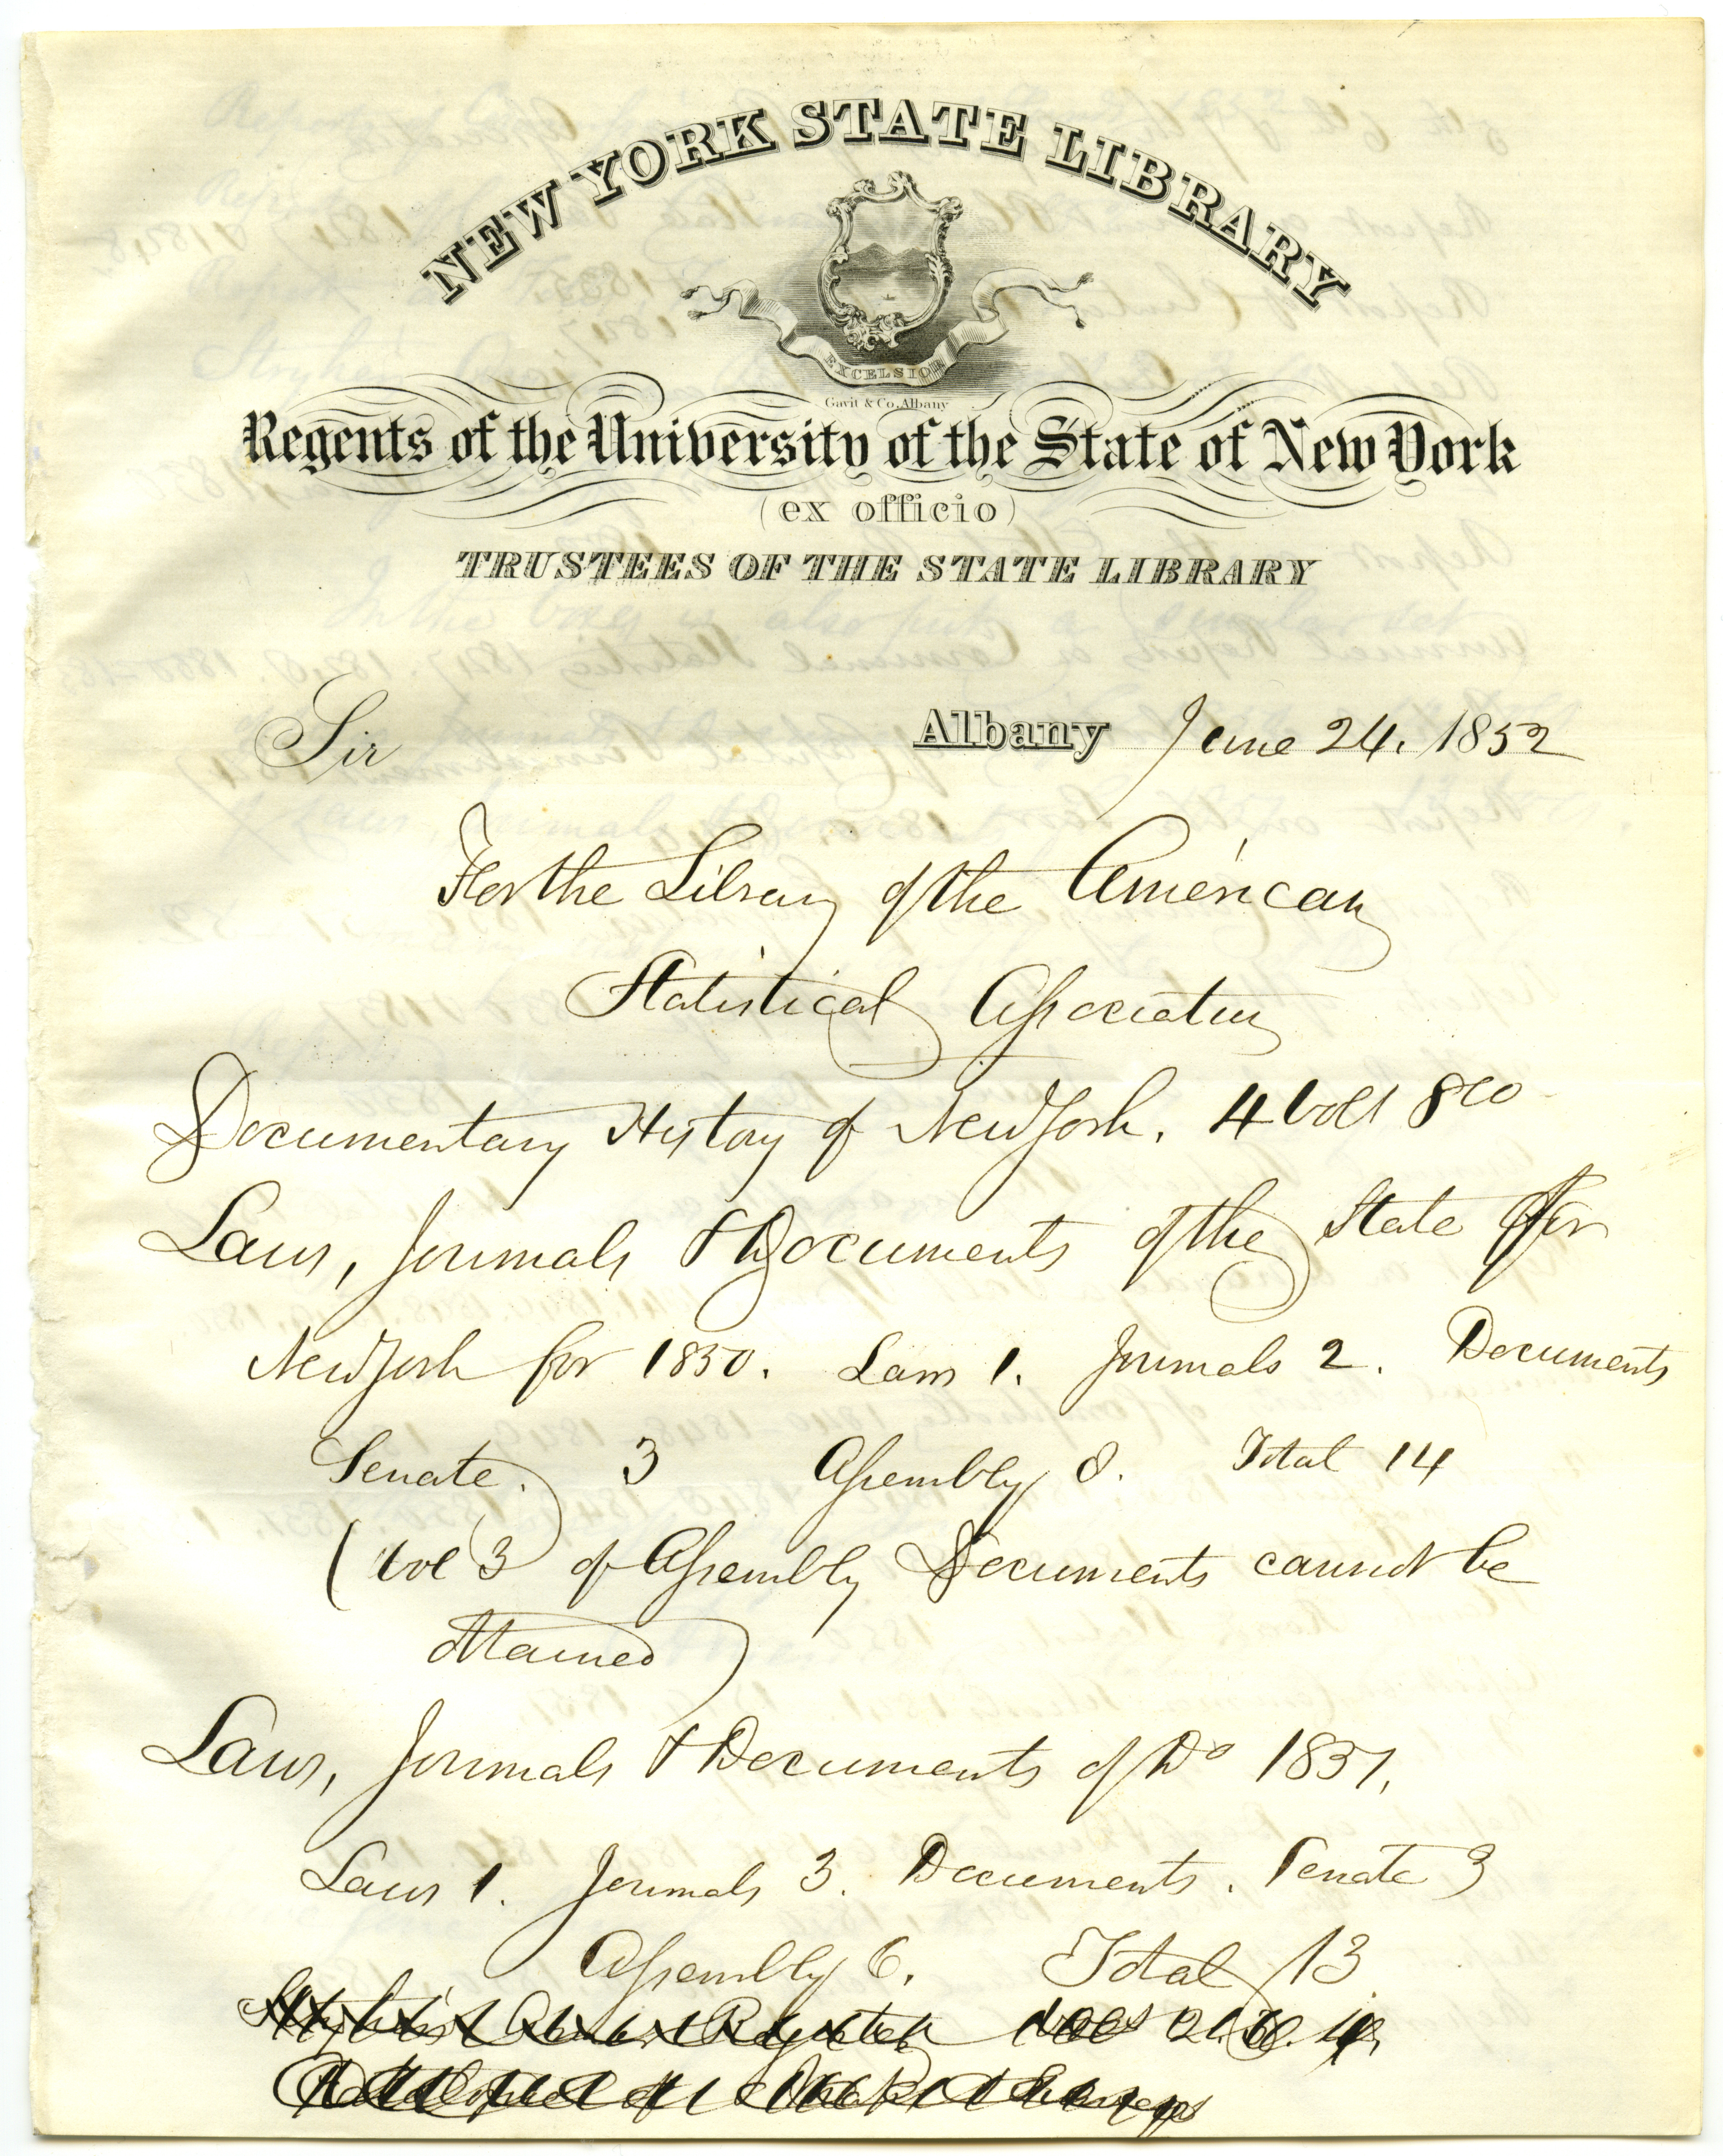 NEW YORK STATE LIBRARY
EXCELSIOR
Gavit & Co. Albany
Regents of the University of the State of New York
(ex officio)
TRUSTEES OF THE STATE LIBRARY
Sir
Albany June 24. 1852
For the Library of the American
Statistical Association
Documentary History of New York. 4 vols 8vo
Laws, Journals & Documents of the State for
New York for 1850. Laws 1. Journals 2. Documents
Senate. 3 Assembly 8. Total 14
(vol 3 of Assembly Documents cannot be
obtained)
Laws, Journals & Documents of Do 1851.
Laws 1. Journals 3. Documents. Senate 3
Assembly 6. Total 13
Register vols 2. 3. 4.
Catalogue of State